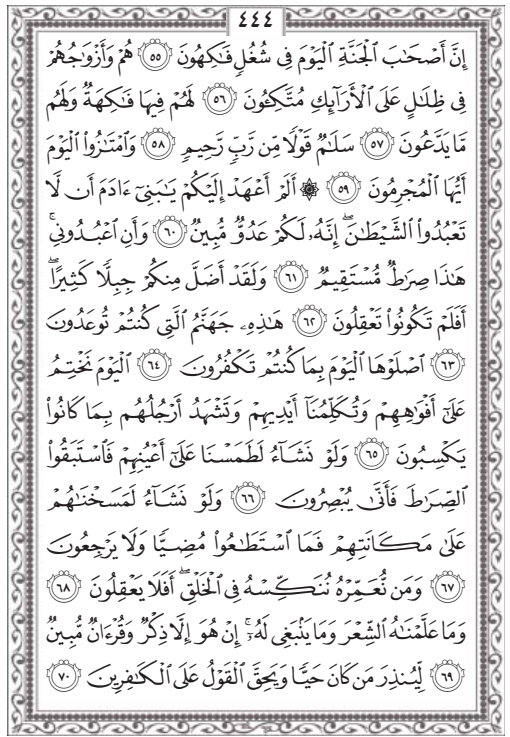 ٤٤٤
إِنَّ أَصْحَـٰبَ ٱلْجَنَّةِ ٱلْيَوْمَ فِى شُغُلٍ فَـٰكِهُونَ ٥٥ هُمْ وَأَزْوَٰجُهُمْ
فِى ظِلَـٰلٍ عَلَى ٱلْأَرَآئِكِ مُتَّكِـُٔونَ ٥٦ لَهُمْ فِيهَا فَـٰكِهَةٌ وَلَهُم
مَّا يَدَّعُونَ ٥٧ سَلَـٰمٌ قَوْلًا مِّن رَّبٍّ رَّحِيمٍ ٥٨ وَٱمْتَـٰزُوا۟ ٱلْيَوْمَ
أَيُّهَا ٱلْمُجْرِمُونَ ٥٩ ۞ أَلَمْ أَعْهَدْ إِلَيْكُمْ يَـٰبَنِىٓ ءَادَمَ أَن لَّا
تَعْبُدُوا۟ ٱلشَّيْطَـٰنَ ۖ إِنَّهُۥ لَكُمْ عَدُوٌّ مُّبِينٌ ٦٠ وَأَنِ ٱعْبُدُونِى ۚ
هَـٰذَا صِرَٰطٌ مُّسْتَقِيمٌ ٦١ وَلَقَدْ أَضَلَّ مِنكُمْ جِبِلًّا كَثِيرًا ۖ
أَفَلَمْ تَكُونُوا۟ تَعْقِلُونَ ٦٢ هَـٰذِهِۦ جَهَنَّمُ ٱلَّتِى كُنتُمْ تُوعَدُونَ
٦٣ ٱصْلَوْهَا ٱلْيَوْمَ بِمَا كُنتُمْ تَكْفُرُونَ ٦٤ ٱلْيَوْمَ نَخْتِمُ
عَلَىٰٓ أَفْوَٰهِهِمْ وَتُكَلِّمُنَآ أَيْدِيهِمْ وَتَشْهَدُ أَرْجُلُهُم بِمَا كَانُوا۟
يَكْسِبُونَ ٦٥ وَلَوْ نَشَآءُ لَطَمَسْنَا عَلَىٰٓ أَعْيُنِهِمْ فَٱسْتَبَقُوا۟
ٱلصِّرَٰطَ فَأَنَّىٰ يُبْصِرُونَ ٦٦ وَلَوْ نَشَآءُ لَمَسَخْنَـٰهُمْ
عَلَىٰ مَكَانَتِهِمْ فَمَا ٱسْتَطَـٰعُوا۟ مُضِيًّا وَلَا يَرْجِعُونَ
٦٧ وَمَن نُّعَمِّرْهُ نُنَكِّسْهُ فِى ٱلْخَلْقِ ۖ أَفَلَا يَعْقِلُونَ ٦٨
وَمَا عَلَّمْنَـٰهُ ٱلشِّعْرَ وَمَا يَنۢبَغِى لَهُۥٓ ۚ إِنْ هُوَ إِلَّا ذِكْرٌ وَقُرْءَانٌ مُّبِينٌ
٦٩ لِّيُنذِرَ مَن كَانَ حَيًّا وَيَحِقَّ ٱلْقَوْلُ عَلَى ٱلْكَـٰفِرِينَ ٧٠